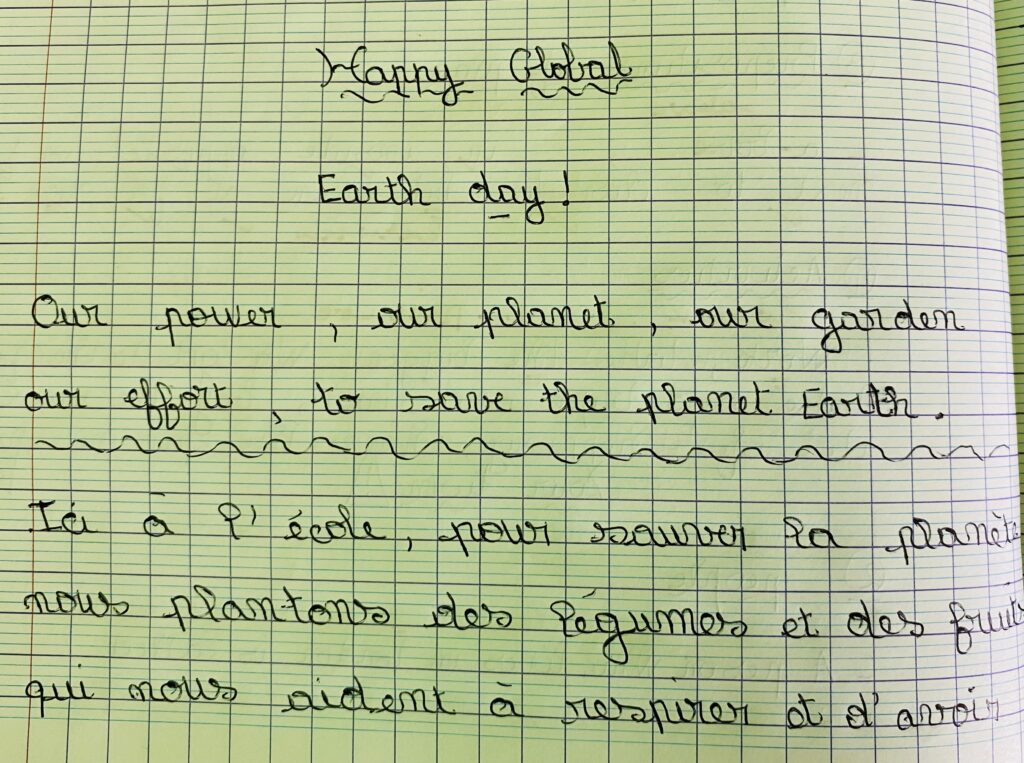 Happy Global
Earth day !
Our power , our planet , our garden
our effort , to save the planet Earth .
Ici à l' école , pour sauver la planète
nous plantons des légumes et des fruits
qui nous aident à respirer et d' avoir